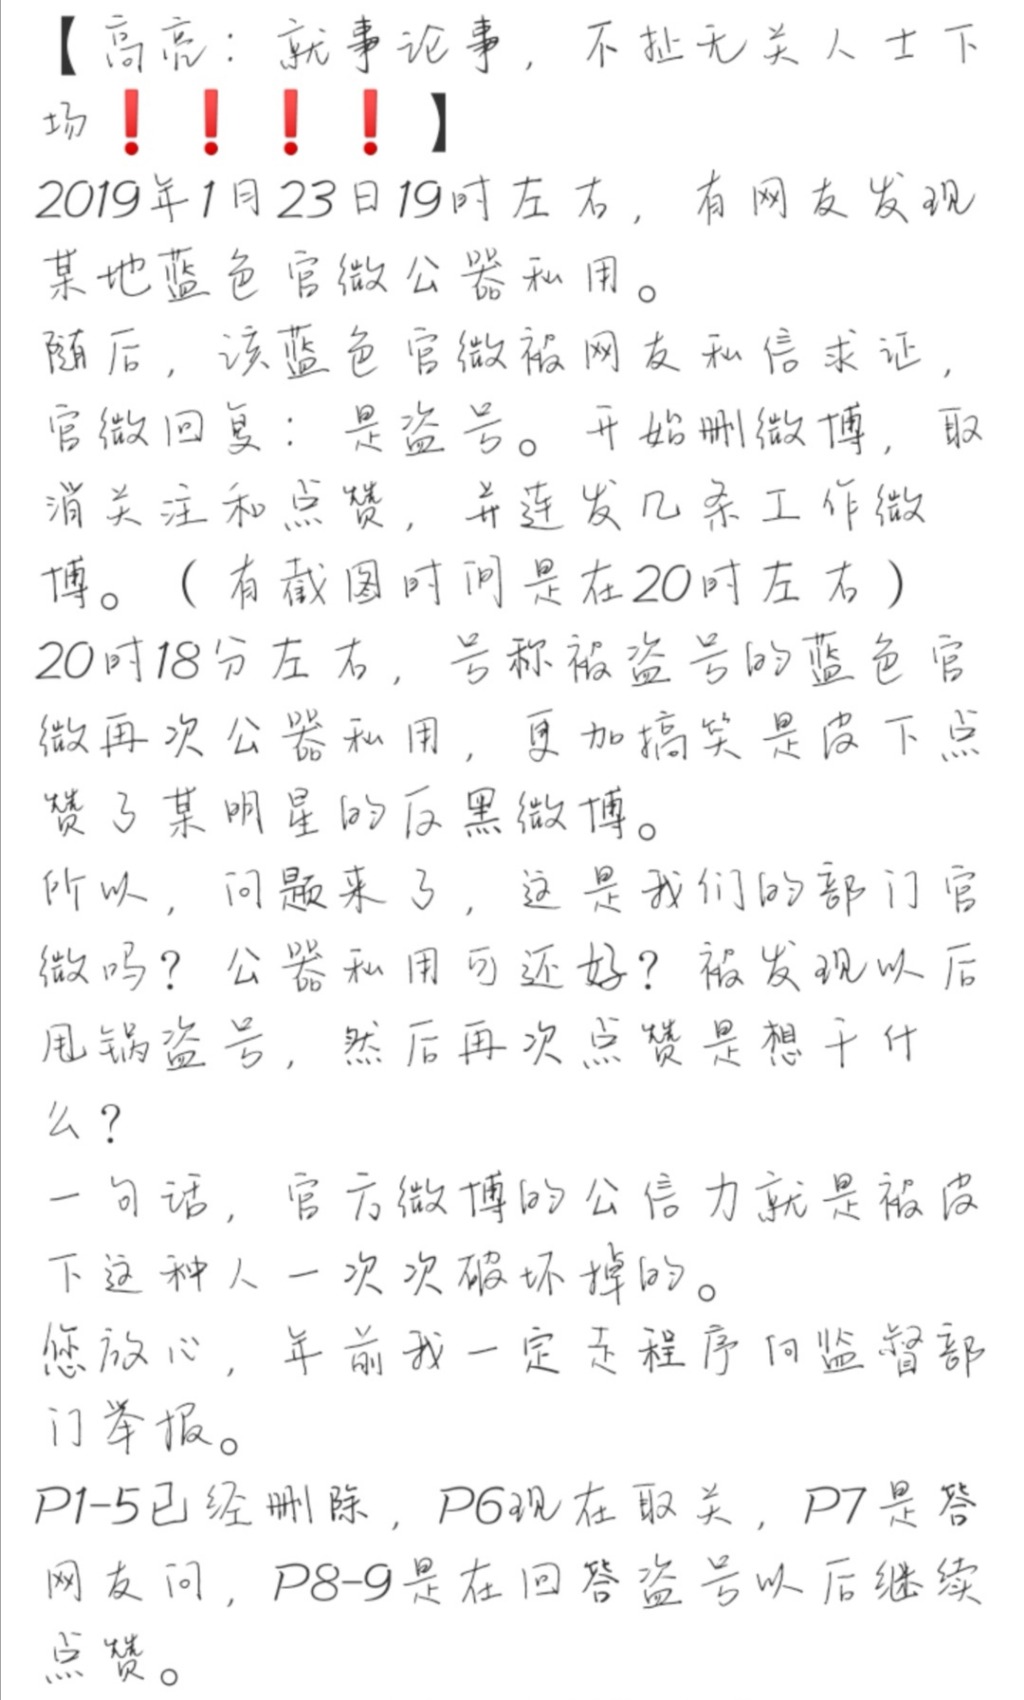 【高亮：就事论事，不扯无关人士下
场❗❗❗❗】
2019年1月23日19时左右，有网友发现
某地蓝色官微公器私用。
随后，该蓝色官微被网友私信求证，
官微回复：是盗号。开始删微博，取
消关注和点赞，并连发几条工作微
博。（有截图时间是在20时左右）
20时18分左右，号称被盗号的蓝色官
微再次公器私用，更加搞笑是皮下点
赞了某明星的反黑微博。
所以，问题来了，这是我们的部门官
微吗？公器私用可还好？被发现以后
甩锅盗号，然后再次点赞是想干什
么？
一句话，官方微博的公信力就是被皮
下这种人一次次破坏掉的。
您放心，年前我一定走程序向监督部
门举报。
P1-5已经删除，P6现在取关，P7是答
网友问，P8-9是在回答盗号以后继续
点赞。